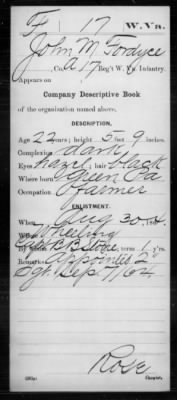 F 17 W. Va.
John M Fordyce
Co. A 17 Reg't W. Va. Infantry.
Appears on
Company Descriptive Book
of the organization named above.
DESCRIPTION.
Age 22 years; height 5 feet 9 inches.
Complexion dark
Eyes Hazel; hair Black
Where born Green Pa
Occupation Farmer
ENLISTMENT.
When Aug 30, 186
Where Wheeling
By whom Capt B B Stone; term 1 y'rs.
Remarks: Appointed 2"
Sgt Sep 7/64
Rose
Copyist.